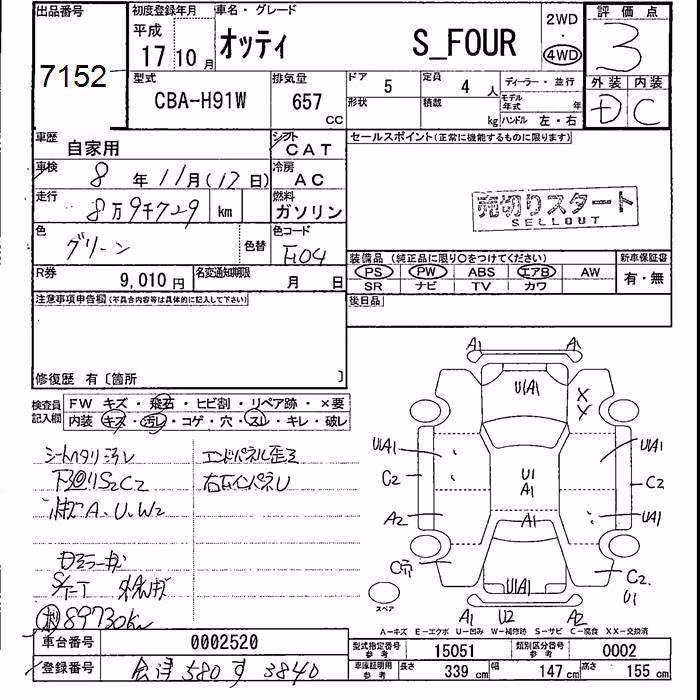 出品番号
7152
初度登録年月
平成
17 10月
車名・グレード
オッティ S_FOUR
2WD
・
4WD
評価点
3
外装 内装
D C
型式
CBA-H91W
排気量
657
CC
ドア
5
定員
4 人
形状
積載
kg
ディーラー・並行
モデル年式 年
ハンドル 左・右
車歴
自家用
シフト
CAT
車検
8 年 11月(17日)
冷房
AC
走行
8万9千729 km
燃料
ガソリン
色
グリーン
色替
色コード
F04
R券
9,010円
名変通知期限
月 日
セールスポイント(正常に機能するものに限ります)
売切りスタート
SELLOUT
装備品(純正品に限り○をつけてください)
PS PW ABS エアB AW
SR ナビ TV カワ
新車保証書
有・無
後日品
注意事項申告欄(不具合内容等は具体的に記入して下さい)
修復歴 有〔箇所 〕
検査員記入欄
FW キズ・飛石・ヒビ割・リペア跡・×要
内装 キズ・汚レ・コゲ・穴・スレ・キレ・破レ
シートヘタリ汚レ
下回りS2C2
A、U、W2
エンドパネル歪ミ
右インパネU
89730km
A1 A1
U1A1
X
X
U1A1 U1A1
C2 C2
U1
A1
A2 A1 U1A1
C穴 C2.
U1
U1A1
スペア
A1 U2 A2
A－キズ E－エクボ U－凹み W－補修跡 S－サビ C－腐食 XX－交換済
車台番号
0002520
登録番号
会津 580 す 3840
型式指定番号
参考
15051
類別区分番号
参考
0002
車庫証明用
参考
長さ 339 cm 幅 147 cm 高さ 155 cm